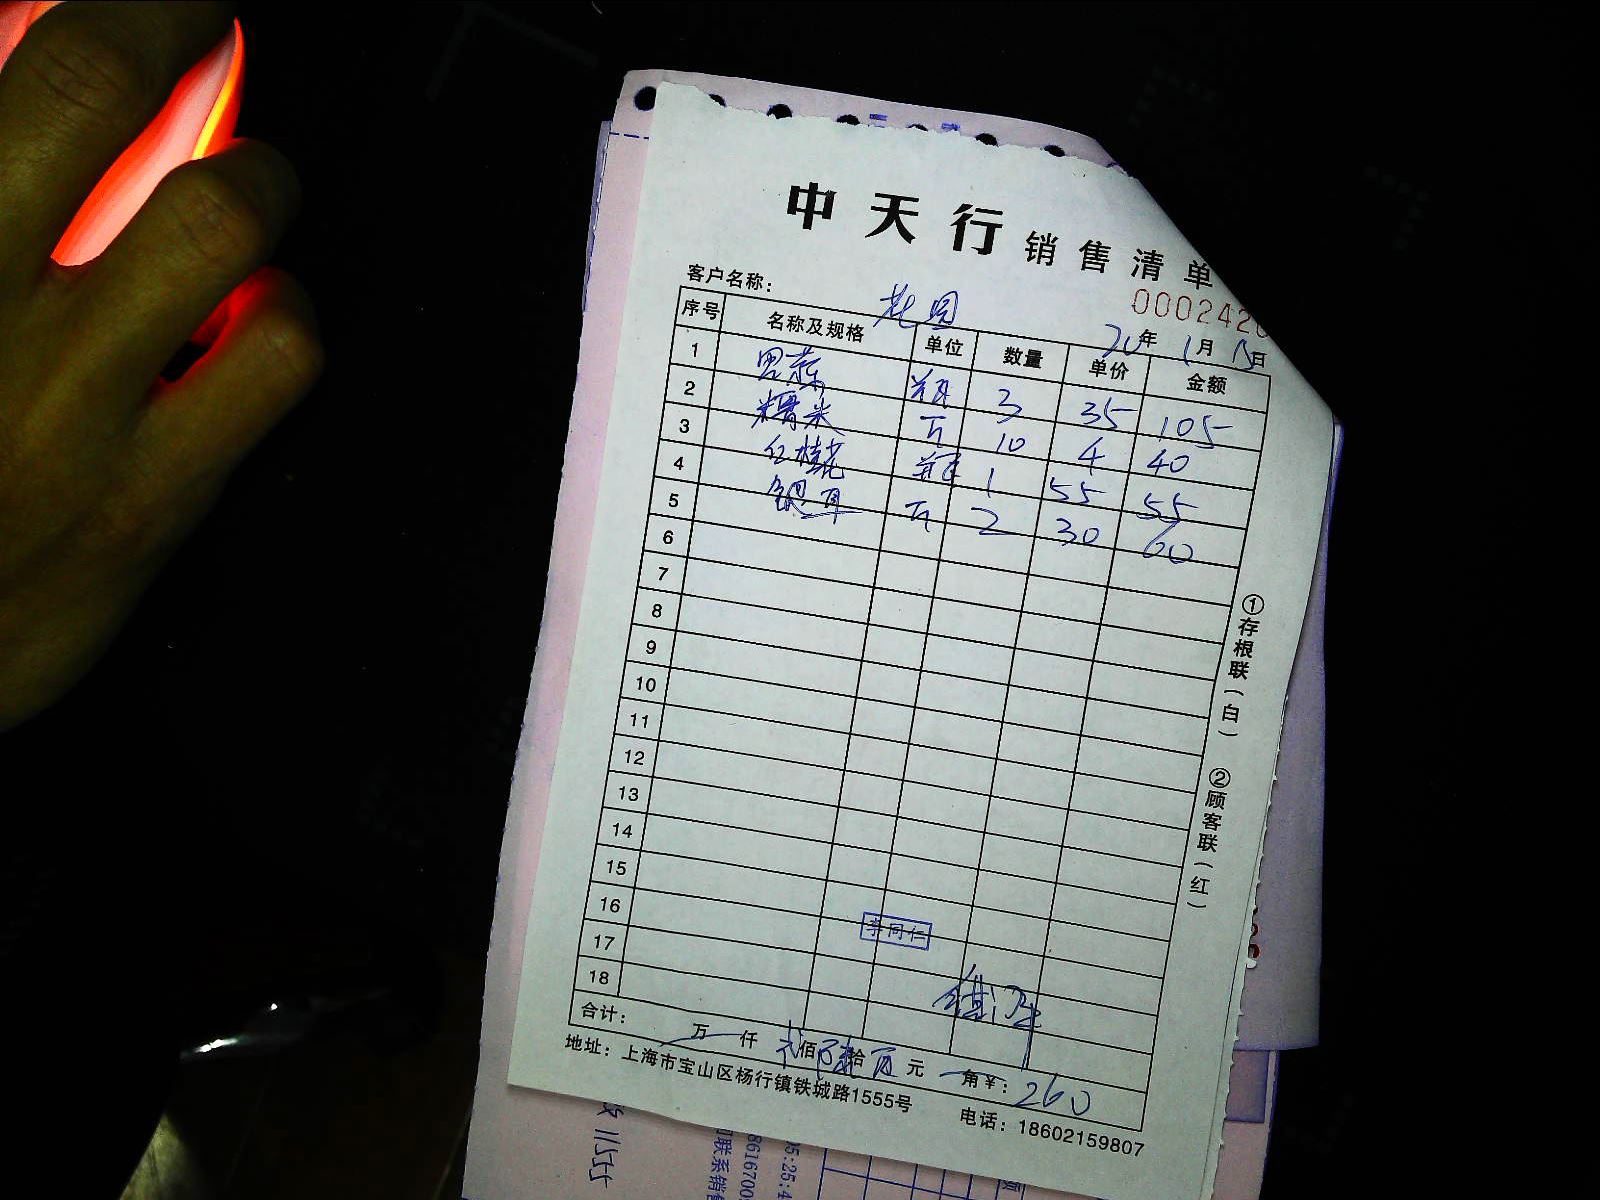 中天行 销售清单
000242
客户名称： 花园
20年 1月 15日
序号 名称及规格 单位 数量 单价 金额
1 3 35 105
2 糯米 斤 10 4 40
3 红桂花 1 55 55
4 银耳 斤 2 30 60
5
6
7
8
9
10
11
12
13
14
15
16
李同仁
17
18
合计： 万 仟 弍佰 陆拾 元 角 ¥： 260
地址：上海市宝山区杨行镇铁城路1555号 电话：18602159807
①存根联（白） ②顾客联（红）